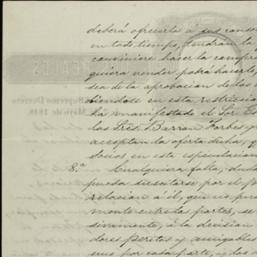 deberá ofrecerla a sus conso
en todo tiempo, tendrán la
conviniere hacer la compra
quiera vender podrá hacerlo,
sea de la aprobacion de los
biendose en esta restriccion
ha manifestado el Sor
los Sres. Barron Forbes y
aceptan la oferta dicha, q
socios en esta especulacion
8.ª Cualquiera falta, duda
pueda suscitarse por el
relacion a él, que no pu
mente entre la partes, se
sivamente, a la decision
dores peritos y amigables
uno por cada parte, y los